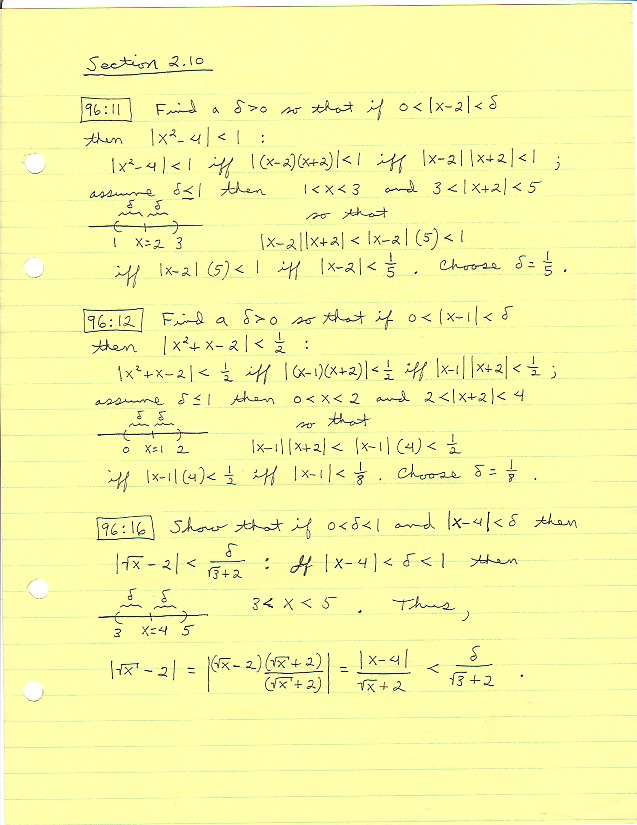 Section 2.10
96:11 Find a δ>0 so that if 0<|x-2|<δ
then |x²-4|<1 :
|x²-4|<1 iff |(x-2)(x+2)|<1 iff |x-2||x+2|<1 ;
assume δ≤1 then 1<x<3 and 3<|x+2|<5
δ δ so that
1 x=2 3 |x-2||x+2| < |x-2|(5) < 1
iff |x-2|(5)<1 iff |x-2|<1/5 . Choose δ=1/5 .
96:12 Find a δ>0 so that if 0<|x-1|<δ
then |x²+x-2|<1/2 :
|x²+x-2|<1/2 iff |(x-1)(x+2)|<1/2 iff |x-1||x+2|<1/2 ;
assume δ≤1 then 0<x<2 and 2<|x+2|<4
δ δ so that
0 x=1 2 |x-1||x+2| < |x-1|(4) < 1/2
iff |x-1|(4)<1/2 iff |x-1|<1/8 . Choose δ=1/8 .
96:16 Show that if 0<δ<1 and |x-4|<δ then
|√x-2| < δ/(√3+2) : If |x-4|<δ<1 then
δ δ 3<x<5 . Thus,
3 x=4 5
|√x-2| = |(√x-2)(√x+2)/(√x+2)| = |x-4|/(√x+2) < δ/(√3+2) .